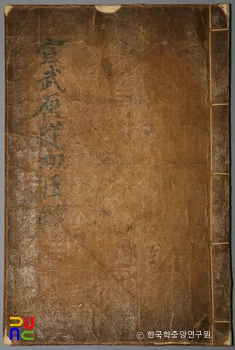 宣武原從功臣錄
PUNC
© 한국학중앙연구원